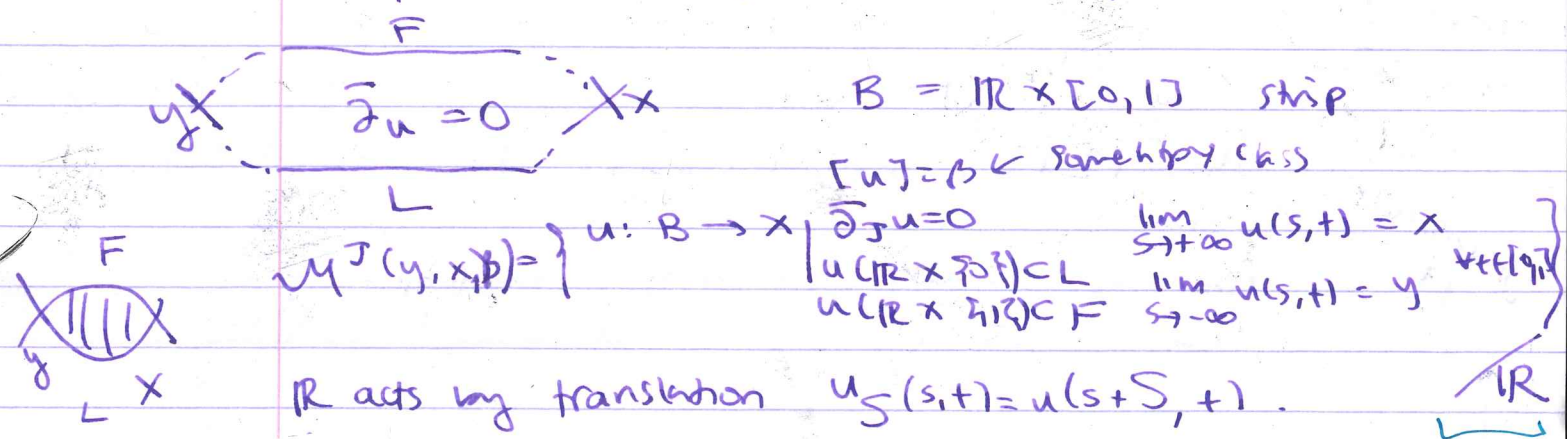 F
y ∂̄u = 0 x
L
B = ℝ × [0,1] strip
[u] = β ← some htpy class
F
y x
L
M^J(y,x,β) = { u: B → X | ∂̄_J u = 0
u(ℝ × {0}) ⊂ L
u(ℝ × {1}) ⊂ F
lim_{s→+∞} u(s,t) = x
lim_{s→-∞} u(s,t) = y ∀t∈[0,1] }
/ℝ
ℝ acts by translation u_S(s,t) = u(s+S, t).